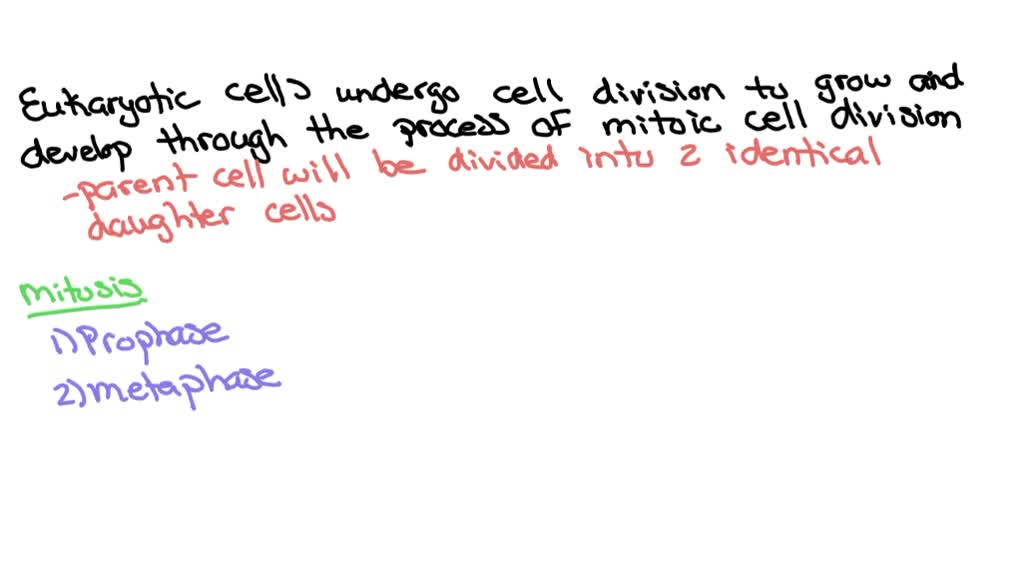 Eukaryotic cells undergo cell division to grow and
develop through the process of mitoic cell division
-parent cell will be divided into 2 identical
daughter cells
mitosis
1) Prophase
2) metaphase